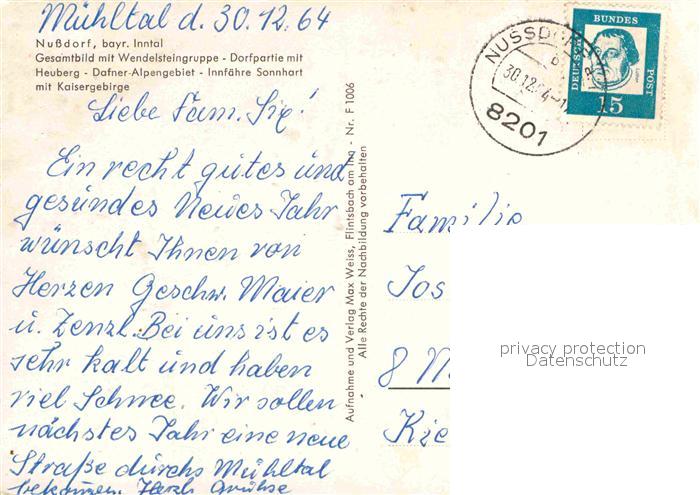 Mühltal d. 30.12.64
Nußdorf, bayr. Inntal
Gesamtbild mit Wendelsteingruppe - Dorfpartie mit
Heuberg - Dafner-Alpengebiet - Innfähre Sonnhart
mit Kaisergebirge
Liebe Fam. Six!
Ein recht gutes und
gesundes Neues Jahr
wünscht Ihnen von
Herzen Geschw. Maier
u. Zenzl. Bei uns ist es
sehr kalt und haben
viel Schnee. Wir sollen
nächstes Jahr eine neue
Straße durchs Mühltal
bekommen. Herzl. Grüße
Aufnahme und Verlag Max Weiss, Flintsbach am Inn - Nr. F 1006
Alle Rechte der Nachbildung vorbehalten
NUSSDORF
30.12.64-1
8201
DEUTSCHE BUNDES POST
15
Familie
Jos
8 M
Kie
privacy protection
Datenschutz